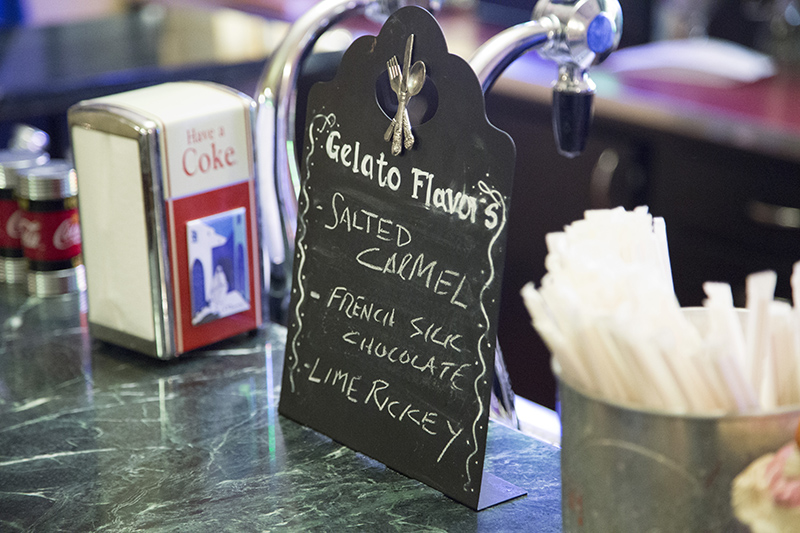 Have a
Coke
Coca-Cola
Gelato Flavors
- SALTED
CARMEL
- FRENCH SILK
CHOCOLATE
- LIME RICKEY